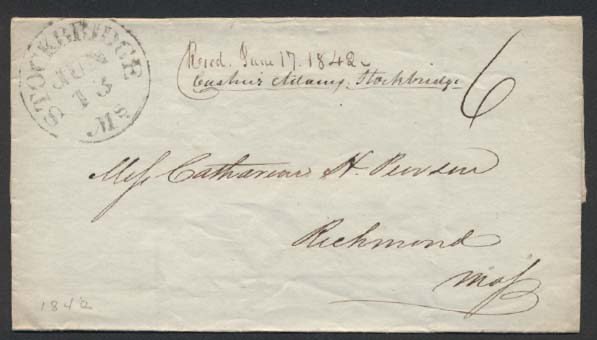 STOCKBRIDGE Ms
JUN
15
Recd. June 17. 1842
Adams, Stockbridge
6
Miss Catharine H. Pierson
Richmond
Mass
1842